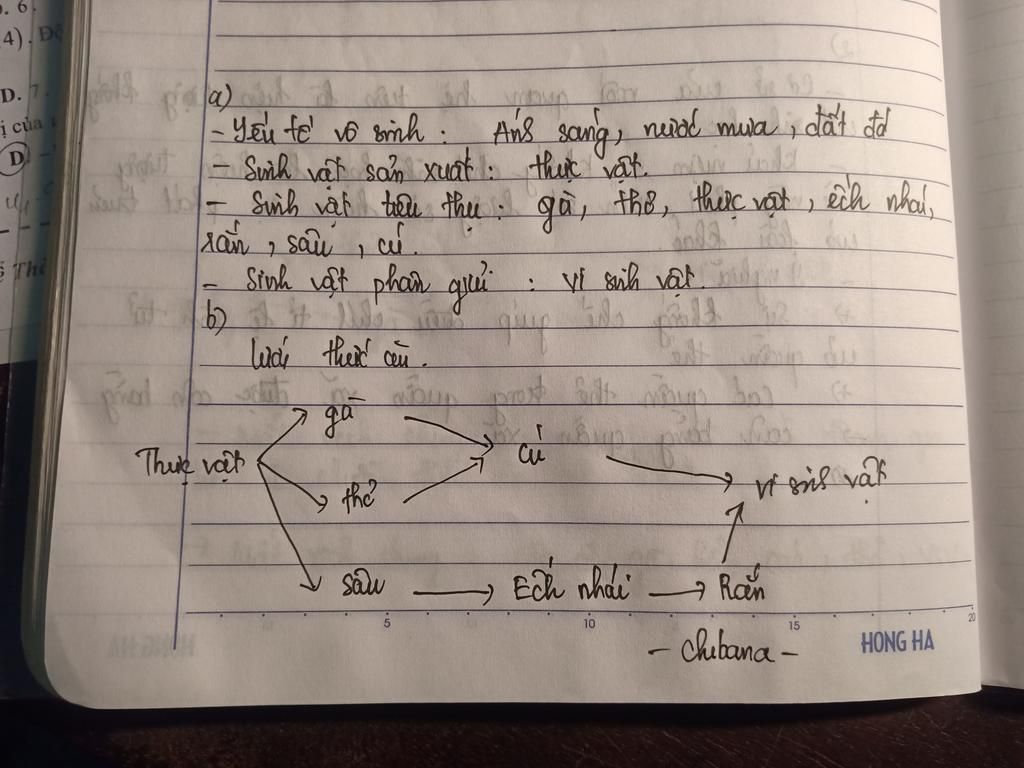 . 6.
4). Đ
D. 7
ị của
D
Th
a)
- Yếu tố vô sinh : Ánh sáng, nước mưa, đất đá
- Sinh vật sản xuất : thực vật.
- Sinh vật tiêu thụ : gà, thỏ, thực vật, ếch nhái,
rắn, sâu, cú.
- Sinh vật phân giải : vi sinh vật.
b)
lưới thức ăn.
gà
Thực vật cú
vi sinh vật
thỏ
sâu Ếch nhái Rắn
5 10 15 20
- Chibana - HONG HA